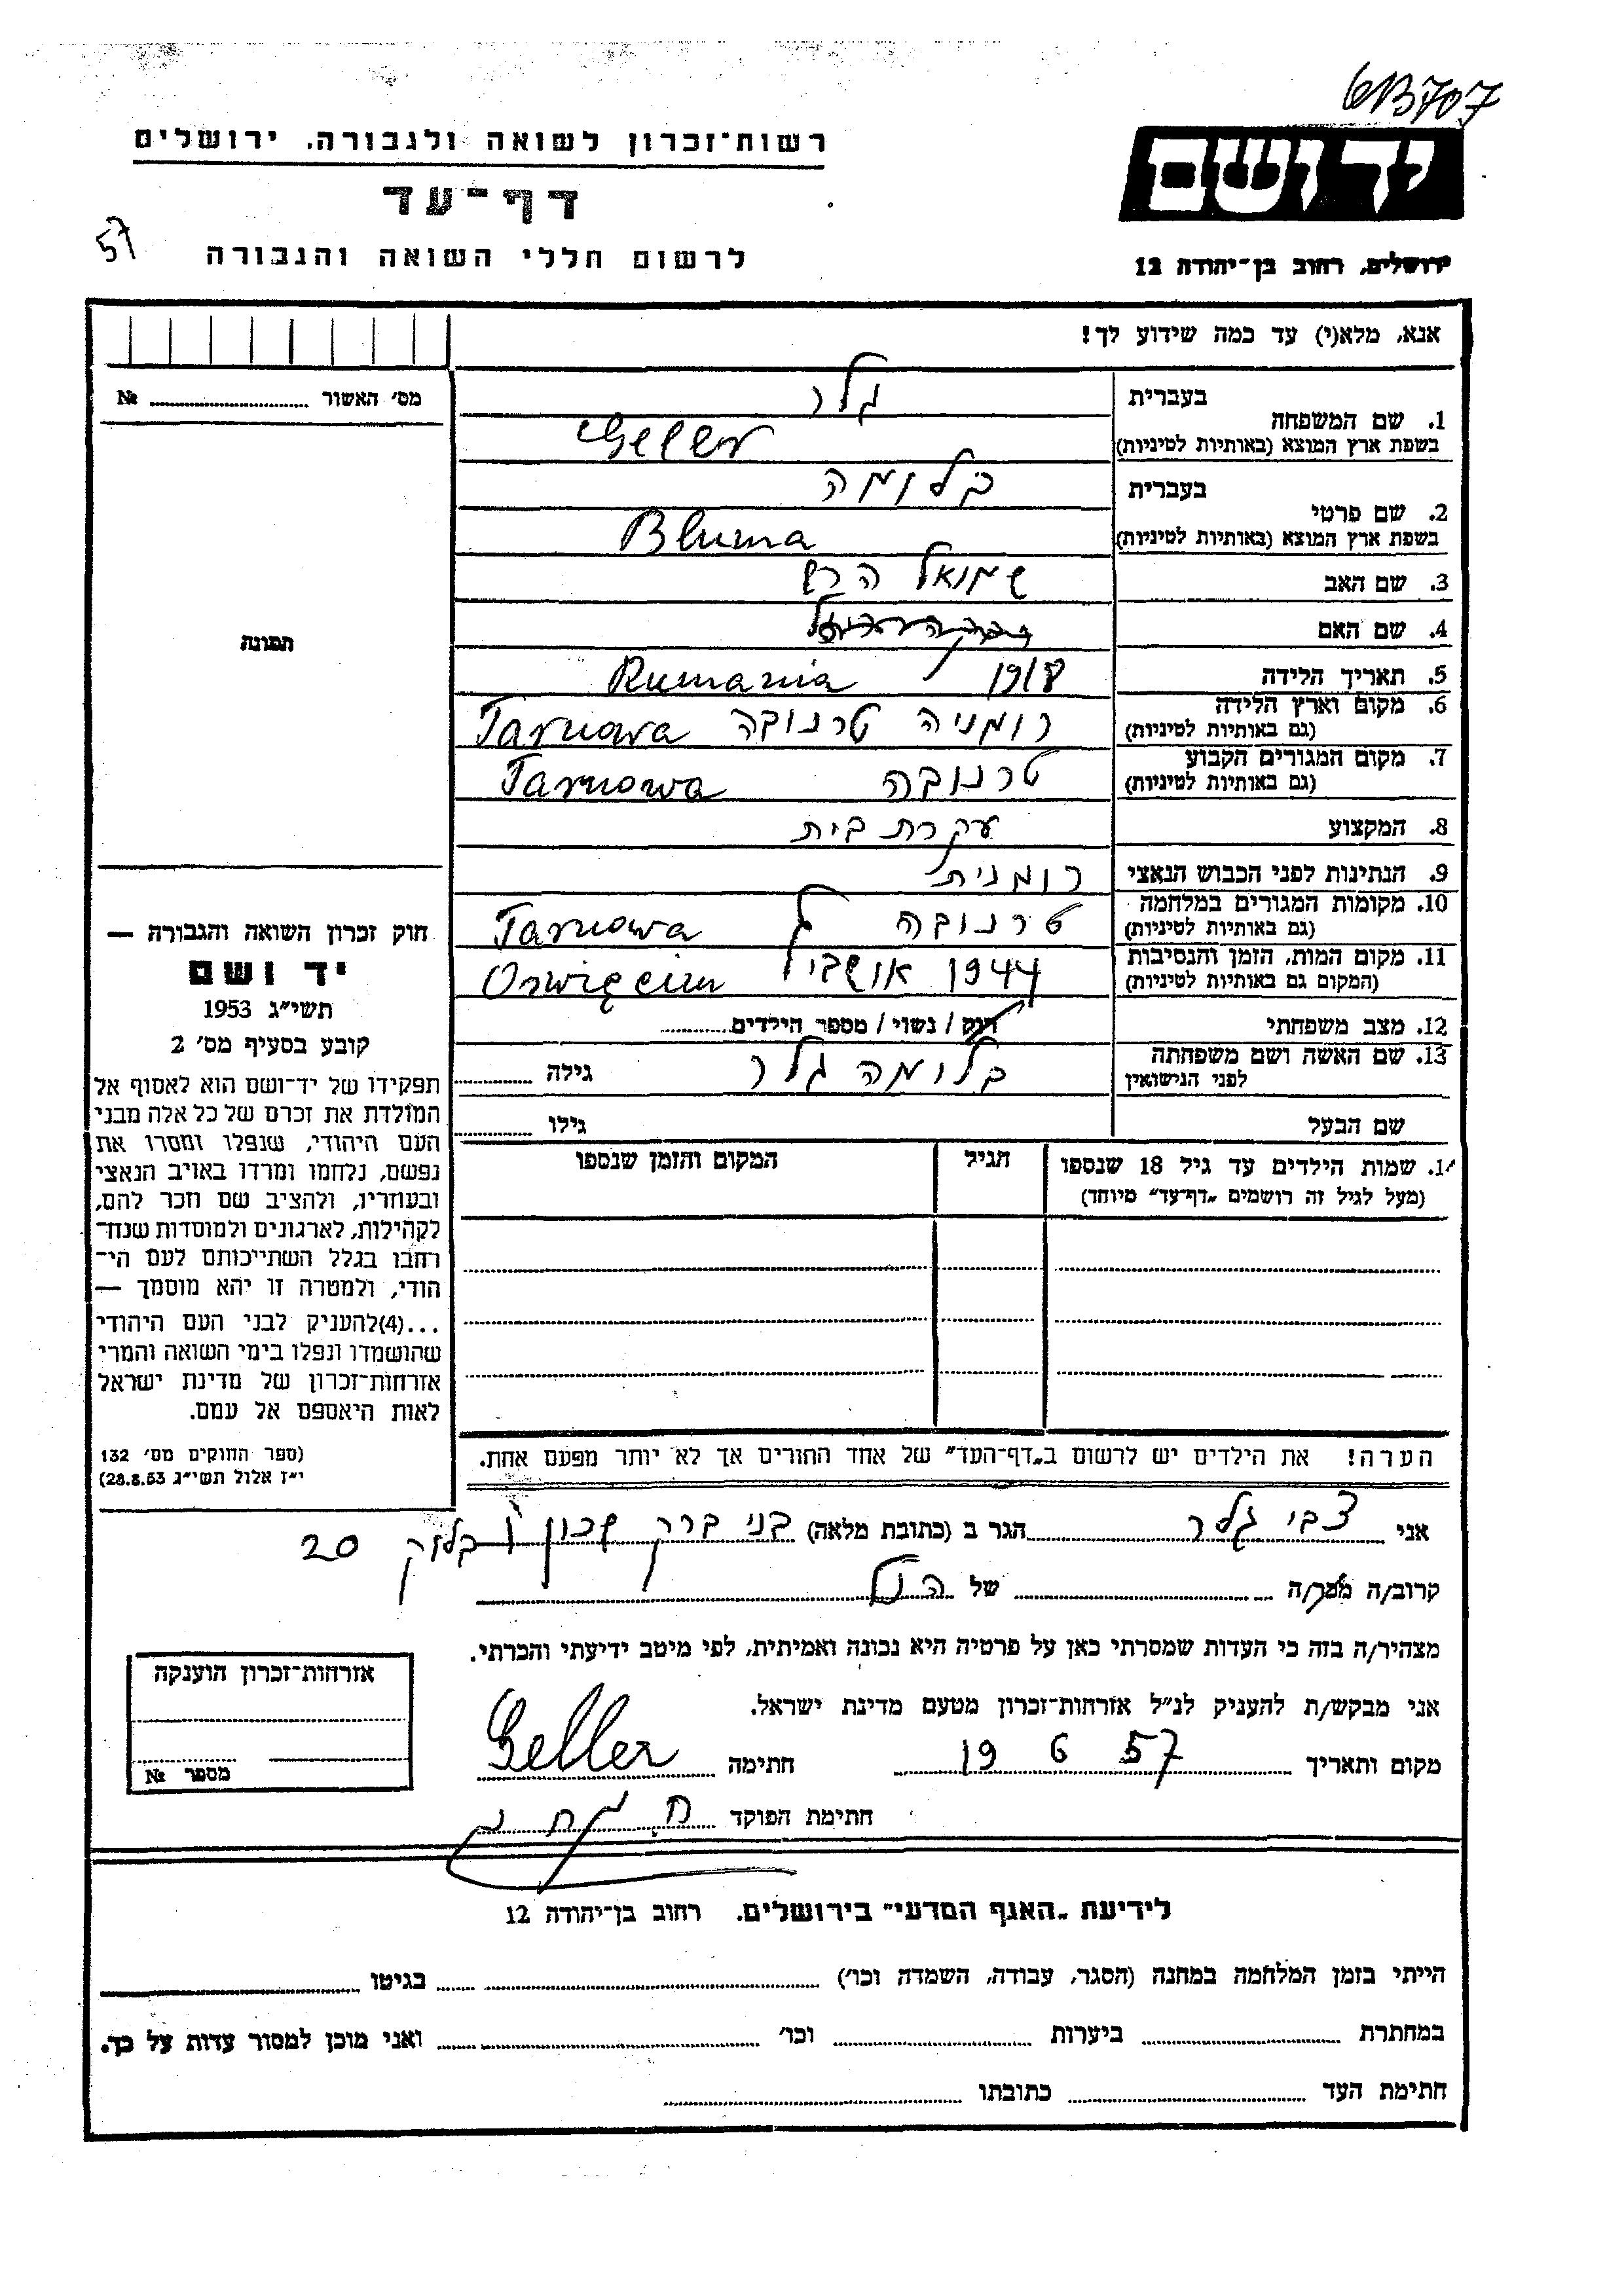 613707
רשות־זכרון לשואה ולגבורה. ירושלים
יד ושם
דף־עד
57
לרשום חללי השואה והגבורה
ירושלים, רחוב בן־יהודה 12
אנא, מלא(י) עד כמה שידוע לך!
מס׳ האשור № 
בעברית גלר
1. שם המשפחה
בשפת ארץ המוצא (באותיות לטיניות) Geller
בעברית בלומה
2. שם פרטי
בשפת ארץ המוצא (באותיות לטיניות) Bluma
3. שם האב שמואל הרש
4. שם האם
תמונה
5. תאריך הלידה 1918 Rumania
6. מקום וארץ הלידה רומניה טרנובה Tarnowa
(גם באותיות לטיניות)
7. מקום המגורים הקבוע טרנובה Tarnowa
(גם באותיות לטיניות)
8. המקצוע עקרת בית
9. הנתינות לפני הכבוש הנאצי רומנית
10. מקומות המגורים במלחמה טרנובה Tarnowa
(גם באותיות לטיניות)
11. מקום המות, הזמן והנסיבות 1944 Oswięcim
(המקום גם באותיות לטיניות)
12. מצב משפחתי רווק / נשוי / מספר הילדים
13. שם האשה ושם משפחתה בלומה גלר גילה
לפני הנישואין
שם הבעל גילו
14. שמות הילדים עד גיל 18 שנספו הגיל המקום והזמן שנספו
(מעל לגיל זה רושמים „דף־עד״ מיוחד)
חוק זכרון השואה והגבורה —
יד ושם
תשי״ג 1953
קובע בסעיף מס׳ 2
תפקידו של יד־ושם הוא לאסוף אל
המולדת את זכרם של כל אלה מבני
העם היהודי, שנפלו ומסרו את
נפשם, נלחמו ומרדו באויב הנאצי
ובעוזריו, ולהציב שם וזכר להם,
לקהילות, לארגונים ולמוסדות שנח־
רבו בגלל השתייכותם לעם הי־
הודי, ולמטרה זו יהא מוסמך —
...(4)להעניק לבני העם היהודי
שהושמדו ונפלו בימי השואה והמרי
אזרחות־זכרון של מדינת ישראל
לאות היאספם אל עמם.
(ספר החוקים מס׳ 132
י״ז אלול תשי״ג 28.8.53)
הערה! את הילדים יש לרשום ב„דף־העד״ של אחד ההורים אך לא יותר מפעם אחת.
אני צבי גלר הגר ב (כתובת מלאה) בני ברק שכון ו בלוק 20
קרוב/ה מכר/ה של הנ״ל
מצהיר/ה בזה כי העדות שמסרתי כאן על פרטיה היא נכונה ואמיתית, לפי מיטב ידיעתי והכרתי.
אני מבקש/ת להעניק לנ״ל אזרחות־זכרון מטעם מדינת ישראל.
מקום ותאריך 19 6 57 חתימה Geller
חתימת הפוקד
אזרחות־זכרון הוענקה
מספר №
לידיעת „האגף המדעי״ בירושלים. רחוב בן־יהודה 12
הייתי בזמן המלחמה במחנה (הסגר, עבודה, השמדה וכו׳) בגיטו
במחתרת ביערות וכו׳ ואני מוכן למסור עדות על כך.
חתימת העד כתובתו